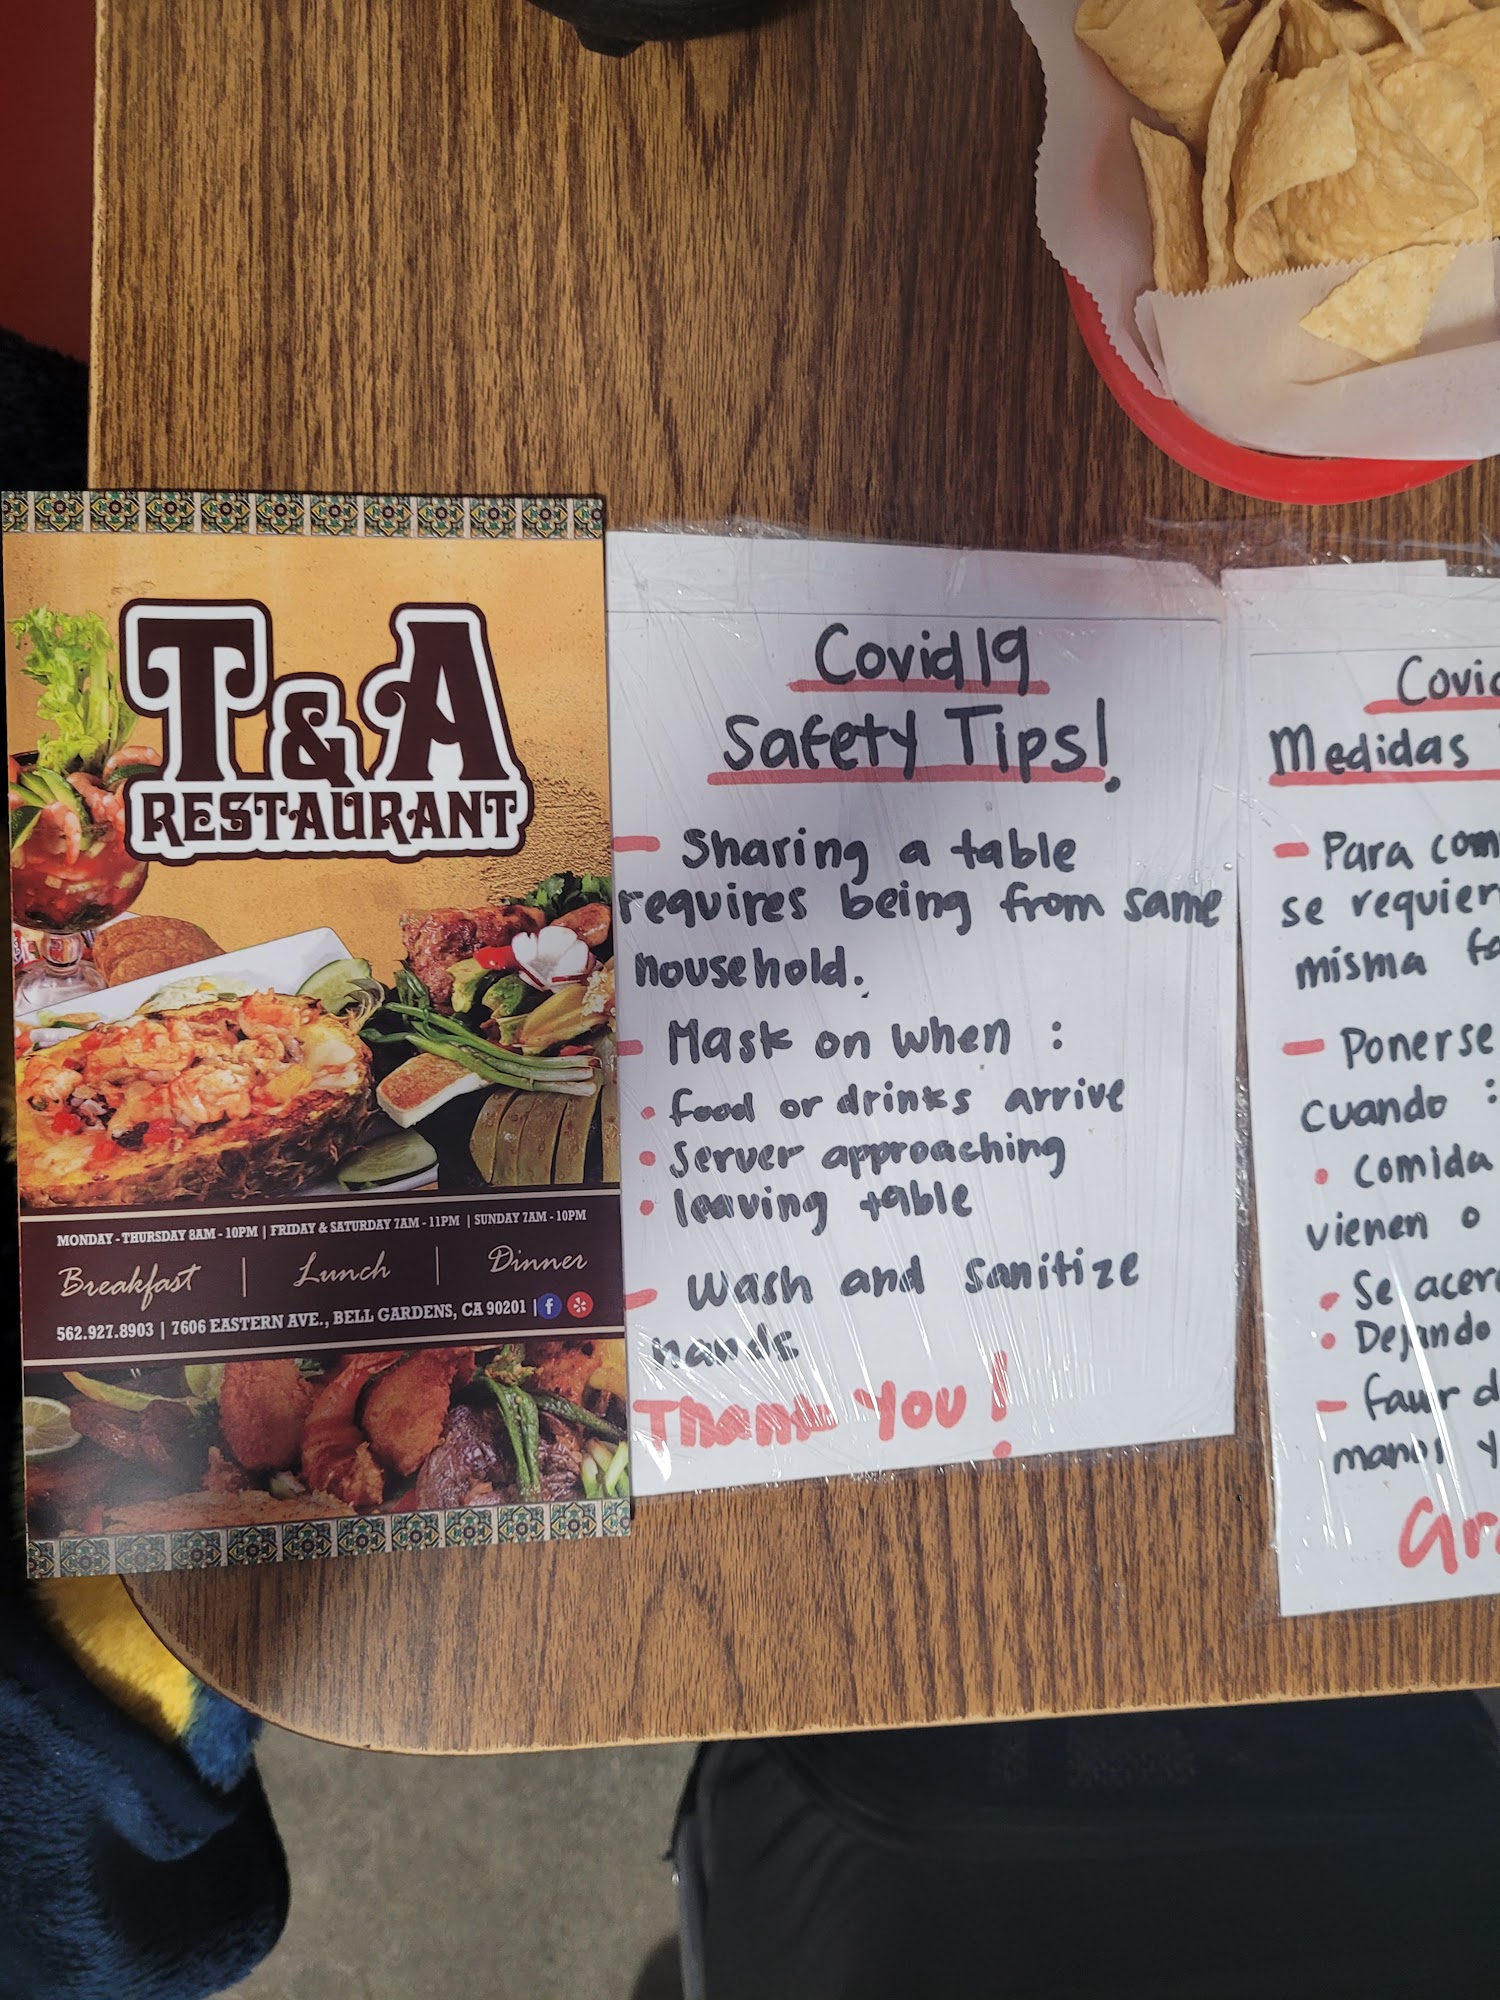 T&A
RESTAURANT
MONDAY - THURSDAY 8AM - 10PM | FRIDAY & SATURDAY 7AM - 11PM | SUNDAY 7AM - 10PM
Breakfast | Lunch | Dinner
562.927.8903 | 7606 EASTERN AVE., BELL GARDENS, CA 90201 |
Covid19
Safety Tips!
- Sharing a table
requires being from same
household.
- Mask on when :
• food or drinks arrive
• Server approaching
• leaving table
- Wash and sanitize
hands
Thank You!
Medidas
- Para
se
misma
- Ponerse
cuando :
• Comida
vienen o
• Se
• Dejando
-
manos y